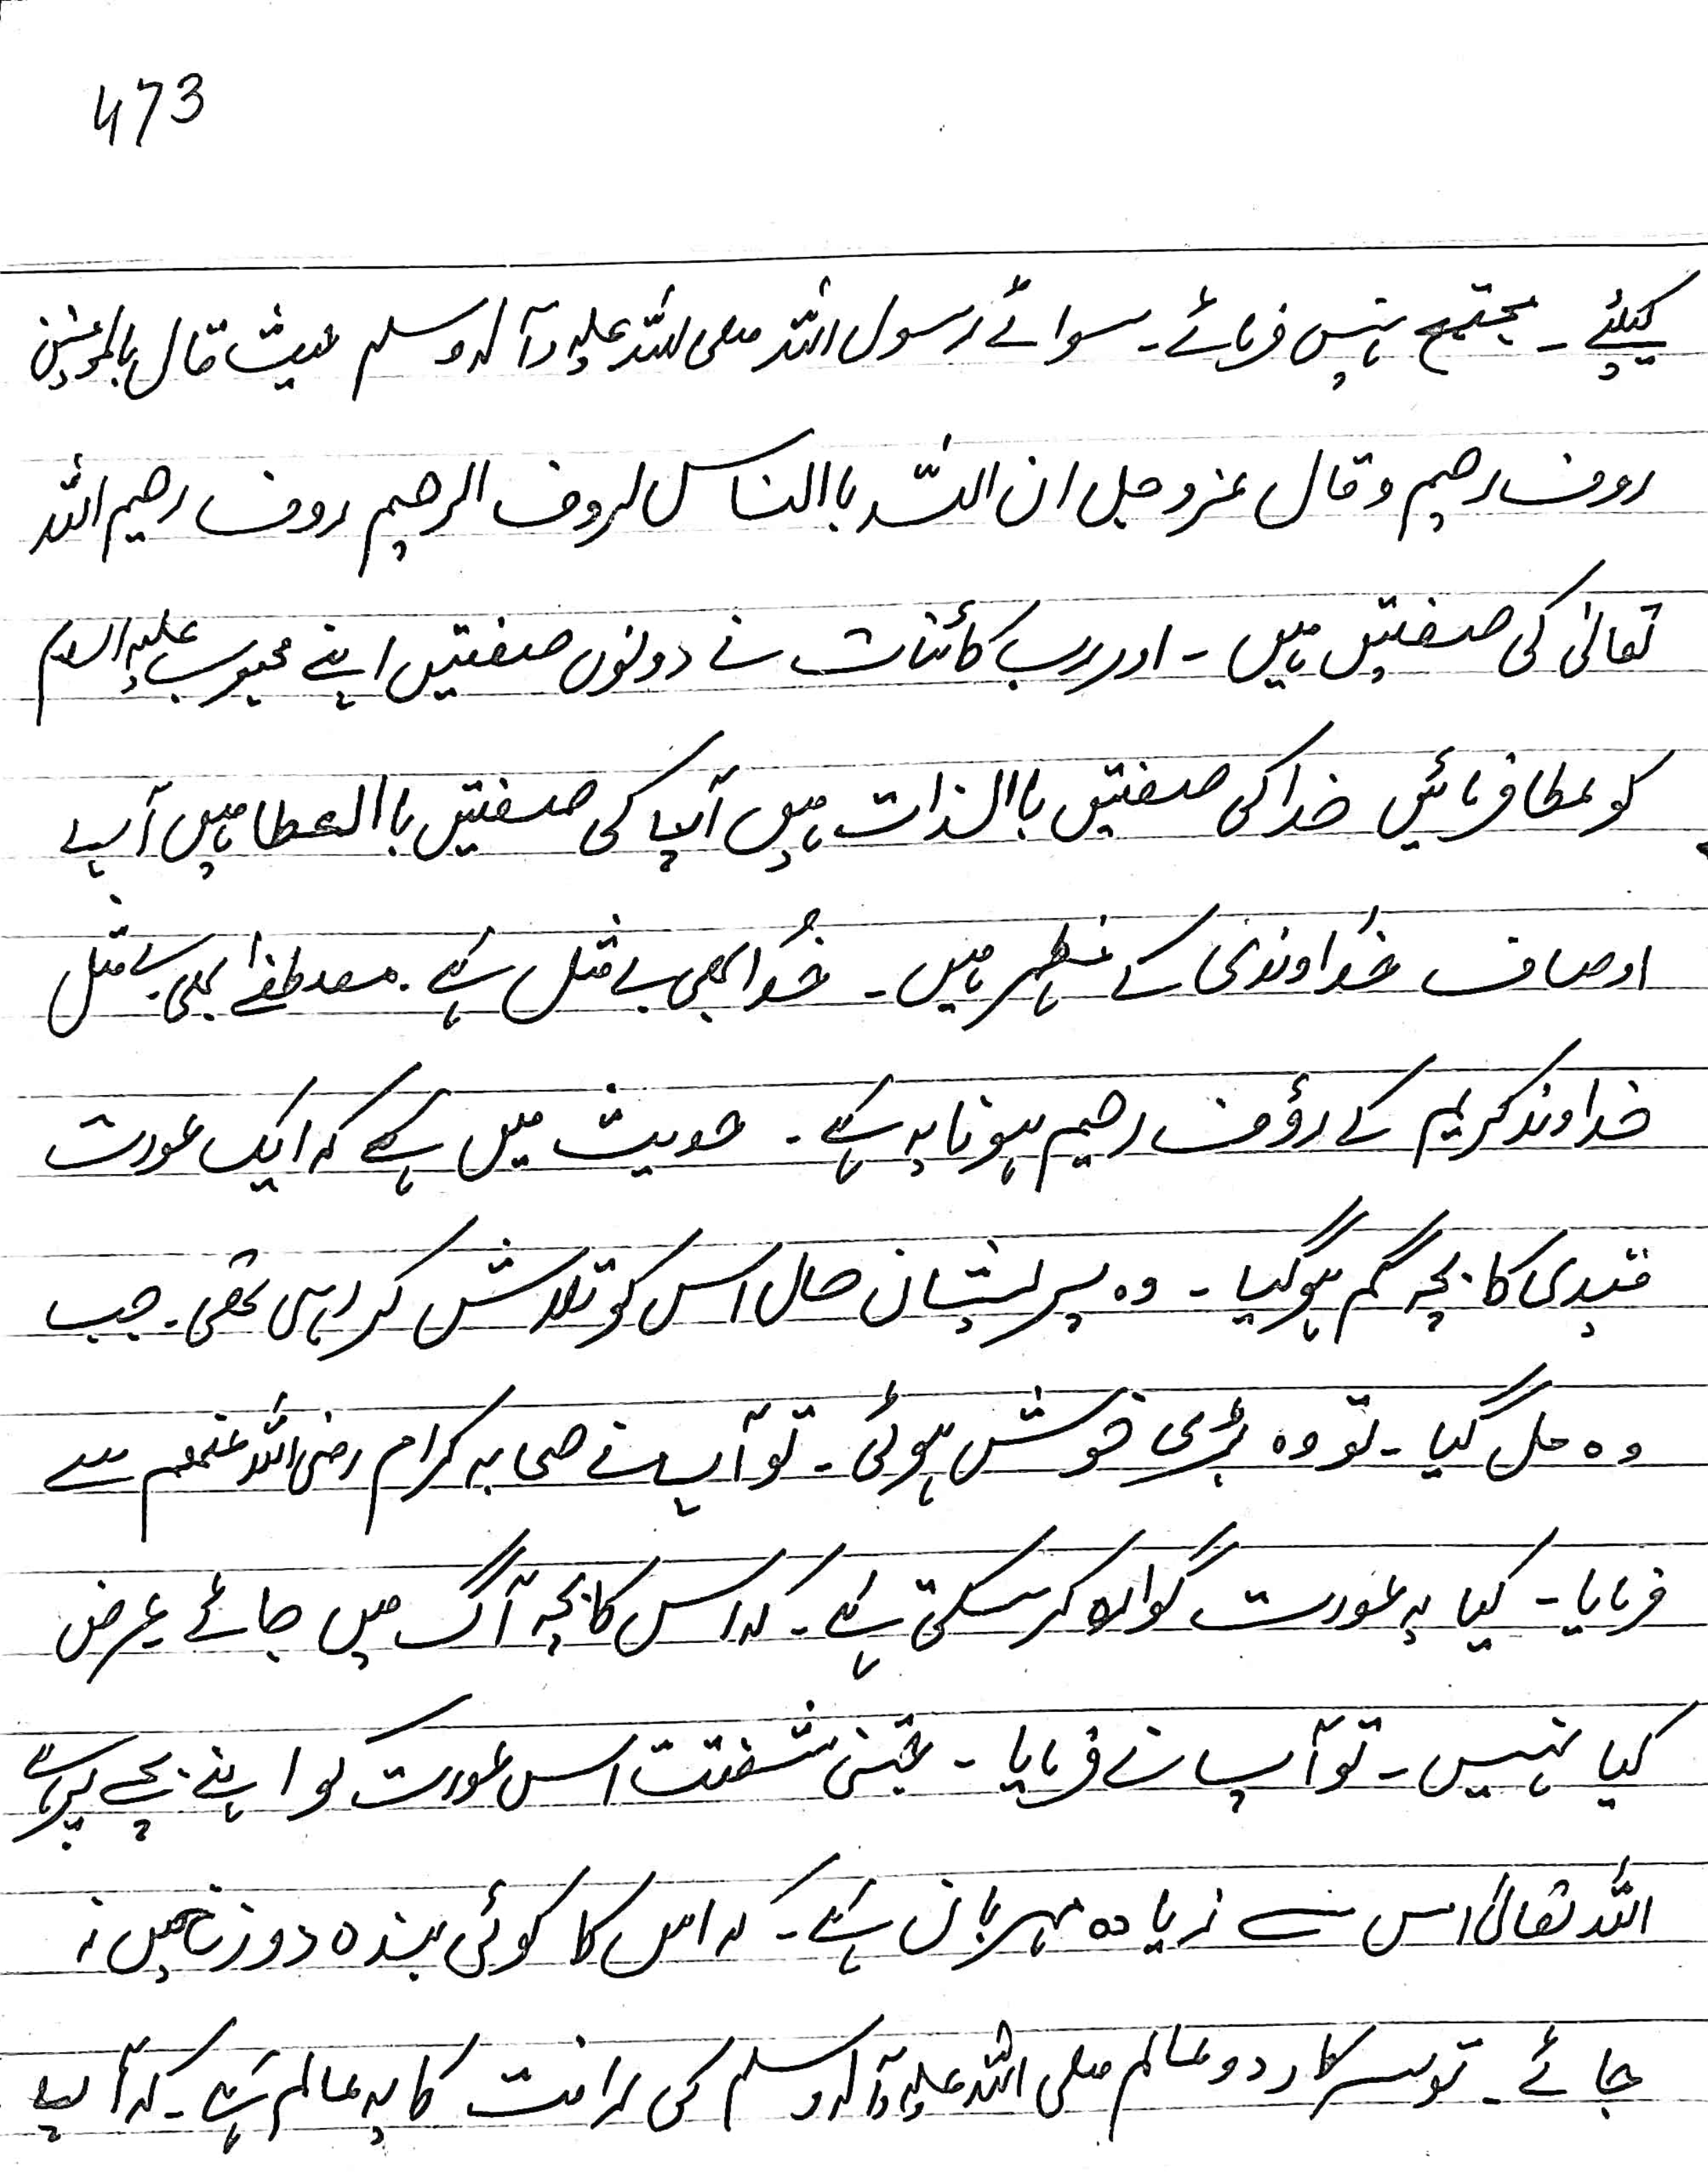 473
کیلئے ۔ مجتمع نہیں فرمائے ۔ سوائے رسول اللہ صلی اللہ علیہ وآلہ وسلم حیث قال بالمومنین
روف رحیم وقال عزوجل ان اللہ باالناس لروف الرحیم روف رحیم اللہ
تعالیٰ کی صفتیں ہیں ۔ اور رب کائنات نے دونوں صفتیں اپنے محبوب علیہ السلام
کو عطا فرمائیں خدا کی صفتیں باالذات ہیں آپ کی صفتیں باالعطا ہیں آپ
اوصاف خُداوندی کے مظہر ہیں ۔ خُدا بھی بے مثل ہے ۔ مصطفےٰ بھی بے مثل
خداوند کریم کے رؤف رحیم ہونا یہ ہے ۔ حدیث میں ہے کہ ایک عورت
قیدی کا بچہ گم ہوگیا ۔ وہ پریشان حال اس کو تلاش کر رہی تھی ۔ جب
وہ مل گیا ۔ تو وہ بڑی خوش ہوئی ۔ تو آپ نے صحابہ کرام رضی اللہ عنھم سے
فرمایا ۔ کیا یہ عورت گوارہ کر سکتی ہے ۔ کہ اس کا بچہ آگ میں جائے عرض
کیا نہیں ۔ تو آپ نے فرمایا ۔ جتنی شفقت اس عورت کو اپنے بچے پر ہے
اللہ تعالیٰ اس سے زیادہ مہربان ہے ۔ کہ اس کا کوئی بندہ دوزخ میں نہ
جائے ۔ تو سرکار دو عالم صلی اللہ علیہ وآلہ وسلم کی رافت کا یہ عالم ہے ۔ کہ آپ